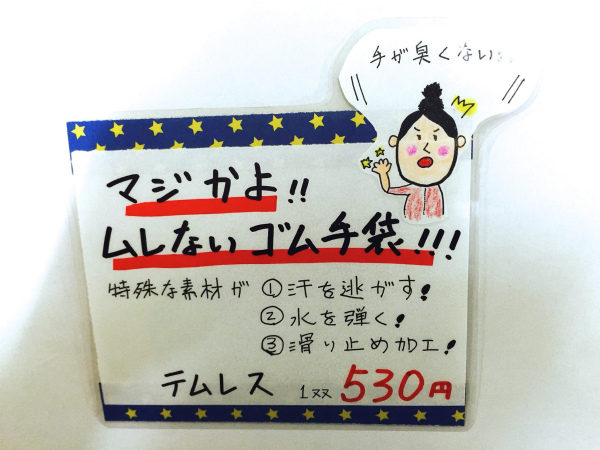 手が臭くない
マジかよ!!
ムレないゴム手袋!!!
特殊な素材が ①汗を逃がす!
②水を弾く!
③滑り止め加工!
テムレス 1双 530円